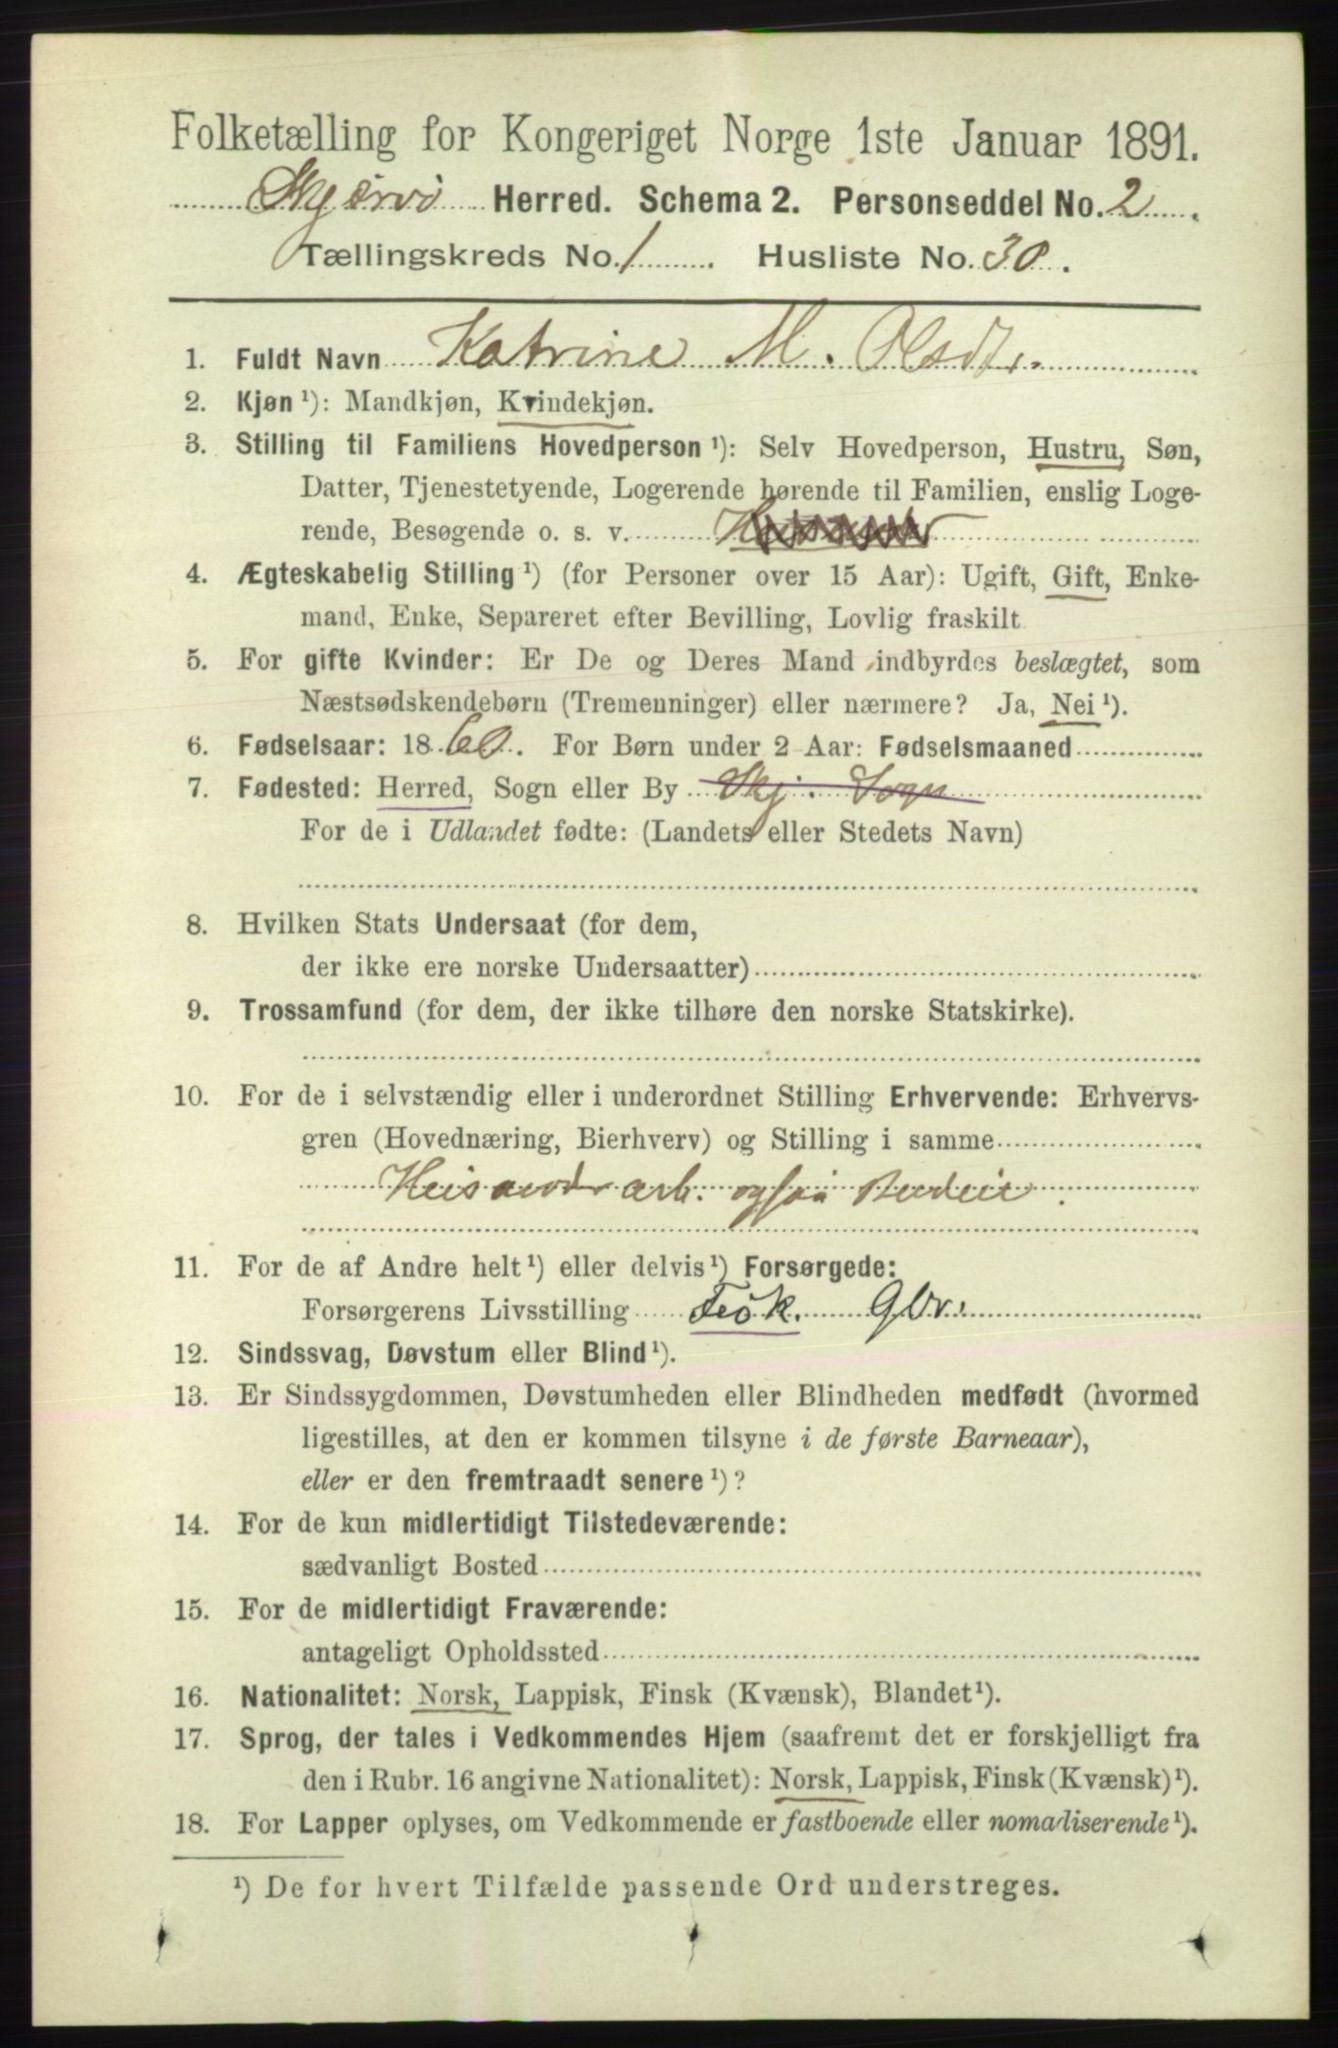 Folketælling for Kongeriget Norge 1ste Januar 1891.
Skjervö Herred. Schema 2. Personseddel No. 2.
Tællingskreds No. 1. Husliste No. 30.
1. Fuldt Navn Katrine M. Olsdtr.
2. Kjøn ¹): Mandkjøn, Kvindekjøn.
3. Stilling til Familiens Hovedperson ¹): Selv Hovedperson, Hustru, Søn,
Datter, Tjenestetyende, Logerende hørende til Familien, enslig Loge-
rende, Besøgende o. s. v.
4. Ægteskabelig Stilling ¹) (for Personer over 15 Aar): Ugift, Gift, Enke-
mand, Enke, Separeret efter Bevilling, Lovlig fraskilt
5. For gifte Kvinder: Er De og Deres Mand indbyrdes beslægtet, som
Næstsødskendebørn (Tremenninger) eller nærmere? Ja, Nei ¹).
6. Fødselsaar: 1860. For Børn under 2 Aar: Fødselsmaaned
7. Fødested: Herred, Sogn eller By Skj. Sogn
For de i Udlandet fødte: (Landets eller Stedets Navn)
8. Hvilken Stats Undersaat (for dem,
der ikke ere norske Undersaatter)
9. Trossamfund (for dem, der ikke tilhøre den norske Statskirke).
10. For de i selvstændig eller i underordnet Stilling Erhvervende: Erhvervs-
gren (Hovednæring, Bierhverv) og Stilling i samme
arb. ogsaa Budeie.
11. For de af Andre helt ¹) eller delvis ¹) Forsørgede:
Forsørgerens Livsstilling Fisk. Gbr.
12. Sindssvag, Døvstum eller Blind ¹).
13. Er Sindssygdommen, Døvstumheden eller Blindheden medfødt (hvormed
ligestilles, at den er kommen tilsyne i de første Barneaar),
eller er den fremtraadt senere ¹)?
14. For de kun midlertidigt Tilstedeværende:
sædvanligt Bosted
15. For de midlertidigt Fraværende:
antageligt Opholdssted
16. Nationalitet: Norsk, Lappisk, Finsk (Kvænsk), Blandet ¹).
17. Sprog, der tales i Vedkommendes Hjem (saafremt det er forskjelligt fra
den i Rubr. 16 angivne Nationalitet): Norsk, Lappisk, Finsk (Kvænsk) ¹).
18. For Lapper oplyses, om Vedkommende er fastboende eller nomadiserende ¹).
¹) De for hvert Tilfælde passende Ord understreges.